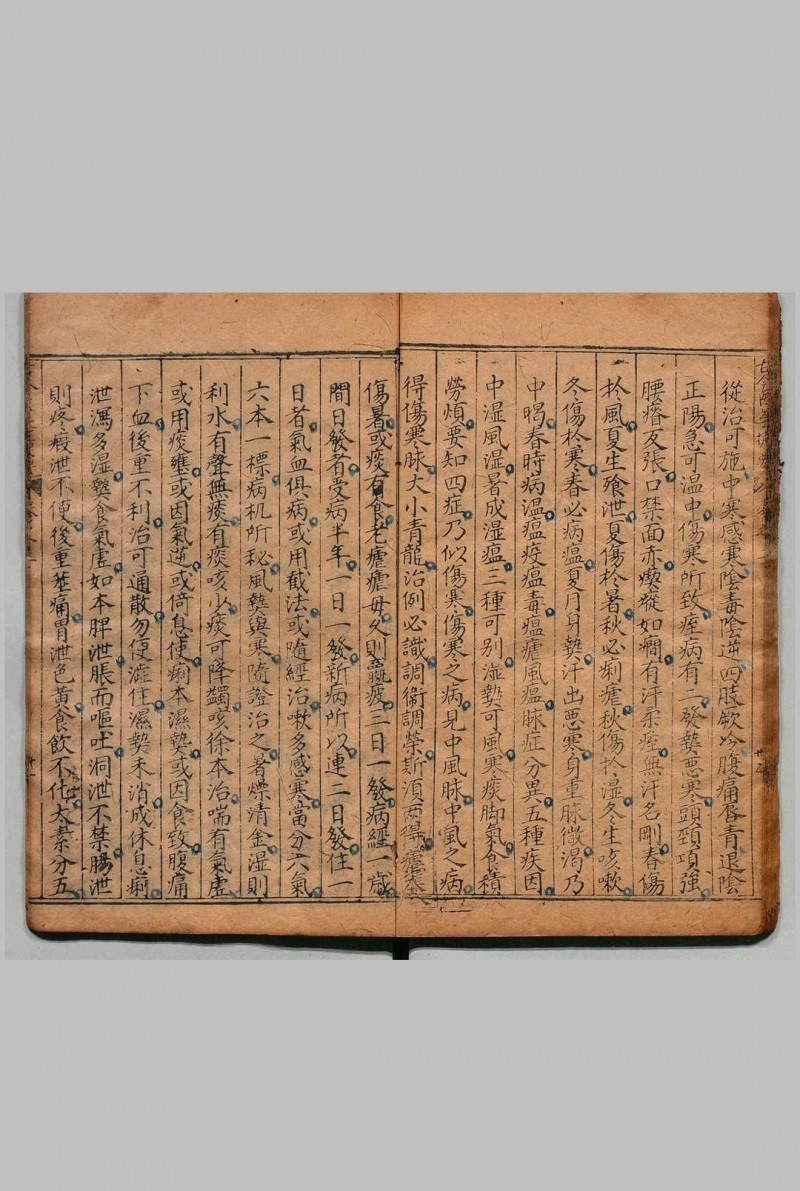 從治可施中寒感寒陰毒陰逆四肢飲冷腹痛唇青退陰
正陽急可温中傷寒所致痓病有二發熱悪寒頭頸項強
腰瘠反張口禁面赤瘈瘲如癇有汗柔痓無汗名剛春傷
扵風夏生飱泄夏傷扵暑秋必痢瘧秋傷扵湿冬生咳嗽
冬傷扵寒春必病瘟夏月身熱汗出悪寒身重脉微渴乃
中暍春時病温瘟疫瘟毒瘟瘧風瘟脉症分異五種疾因
中湿風湿暑成湿瘟三種可别湿熱可風寒痰脚氣食積
勞煩要知四症乃似傷寒傷寒之病見中風脉中風之病
得傷寒脉大小青龍治例必識調衛調榮斯湏两得瘧本
傷暑或痰有食老瘧瘧母久則羸疲三日一發病經一歲
間日發者受病半年一日一發新病所以連二日發住一
日者氣血俱病或用截法或隨經治嗽多感寒當分六氣
六本一標病机所秘風熱與寒隨證治之暑燥清金湿則
利水有聲無痰有痰咳少痰可降蠲咳徐本治喘有氣虚
或用痰壅或因氣逆或倚息使痢本濕熱或因食致腹痛
下血後重不利治可通散勿便澁住濕熱未消成休息痢
泄瀉多湿熱食氣虚如本脾泄脹而嘔吐洞泄不禁腸泄
則疼瘕泄不便後重莖痛胃泄色黄食飲不化太素分五